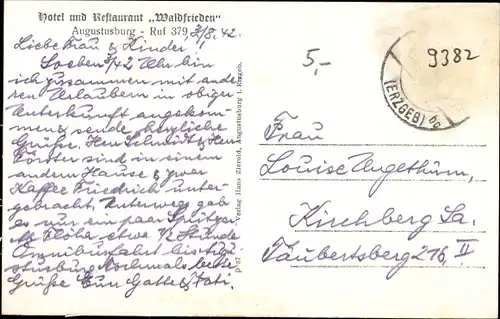 Hotel und Restaurant „Waldfrieden"
Augustusburg - Ruf 379 3/8. 42.
Liebe Frau & Kinder!
Soeben 3/42 Uhr bin
ich zusammen mit ande
ren Urlaubern in obiger
Unterkunft angekom
men & sende herzliche
Grüße. Herr Schmidt & Herr
Förster sind in einem
andern Hause & zwar
Kaffee Friedrich unter-
gebracht. Unterwegs gab
es nur ein paar Spritzer
Flöha etwa ½ Stunde
Omnibusfahrt bis Augu
stusburg. Nochmals beste
Grüße Euer Gatte & Vati.
Verlag Hans Zierold, Augustusburg i. Erzgeb.
5,-
9382
(ERZGEB)
Frau
Louise Ungethüm,
Kirchberg Sa.
Taubertsberg 276, II